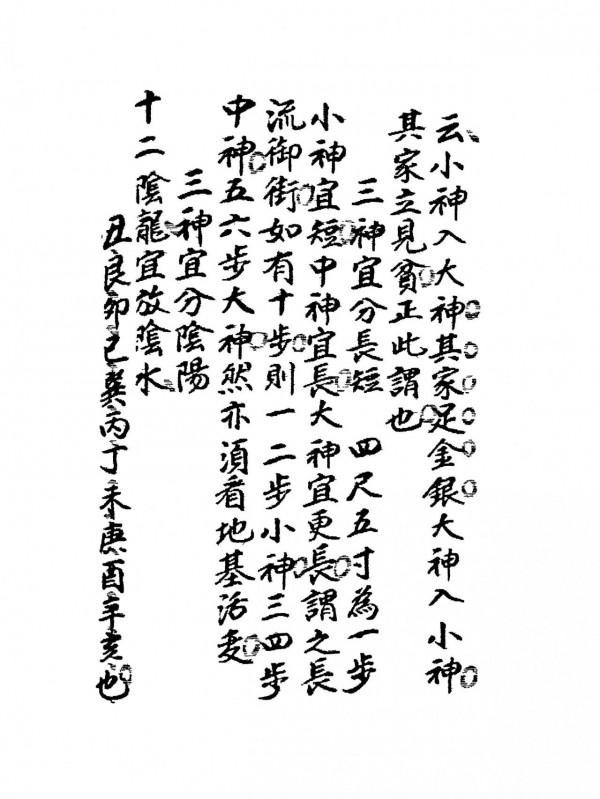 云小神入大神其家足金銀大神入小神
其家立見貧正此謂也
三神宜分長短 四尺五寸為一步
小神宜短中神宜長大神宜更長謂之長
流御街如有十步則一二步小神三四步
中神五六步大神然亦須看地基活変
三神宜分陰陽
十二陰龍宜放陰水
丑艮卯巳巽丙丁未庚酉辛亥也